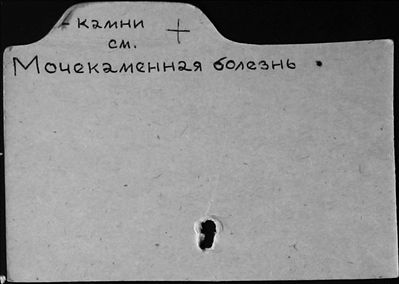 - камни +
см.
Мочекаменная болезнь .